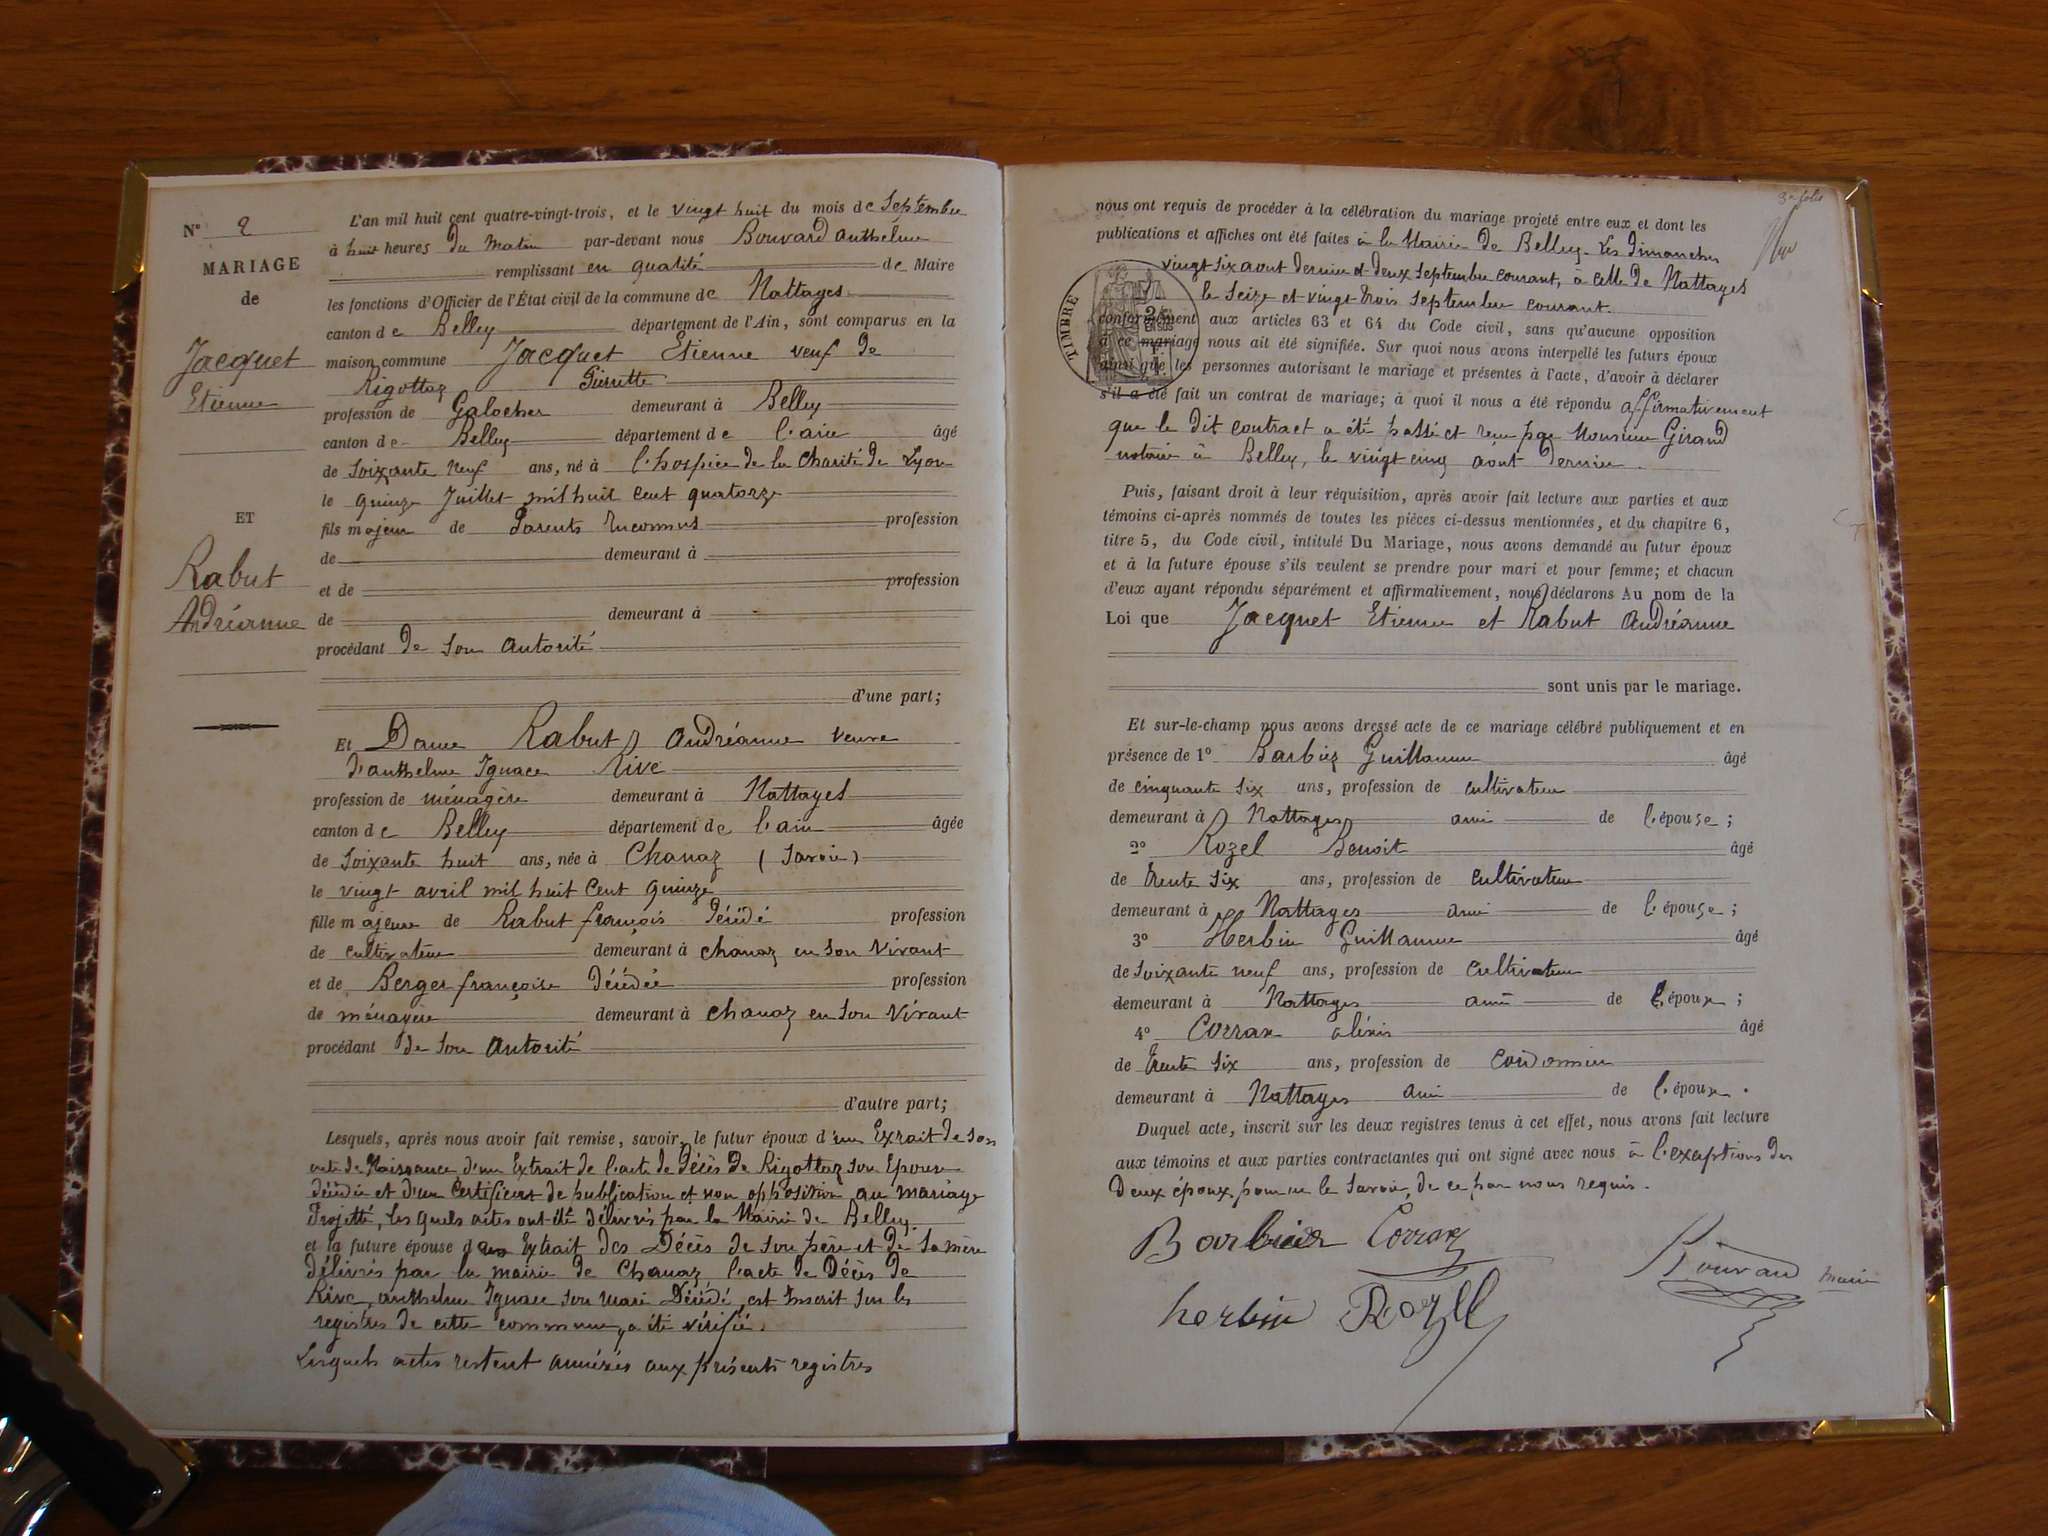 N° 2
MARIAGE
de
Jacquet
Etienne
ET
Rabut
Andréanne
L'an mil huit cent quatre-vingt-trois, et le vingt huit du mois de Septembre
à huit heures du Matin par-devant nous Bouvard anthelme
remplissant en qualité de Maire
les fonctions d'Officier de l'État civil de la commune de Nattages
canton de Belley département de l'Ain, sont comparus en la
maison commune Jacquet Etienne veuf de
Rigottaz Pierrette
profession de Galocher demeurant à Belley
canton de Belley département de l'ain âgé
de Soixante neuf ans, né à l'hospice de la Charité de Lyon
le quinze Juillet mil huit cent quatorze
fils majeur de Parents Inconnus profession
de demeurant à
et de profession
de demeurant à
procédant de son autorité
d'une part;
Et Dame Rabut Andréanne veuve
d'anthelme Ignace Rive
profession de ménagère demeurant à Nattages
canton de Belley département de l'ain âgée
de Soixante huit ans, née à Chanaz (Savoie)
le vingt avril mil huit cent quinze
fille majeure de Rabut françois Décédé profession
de cultivateur demeurant à chanaz en son vivant
et de Berger françoise Décédée profession
de ménagère demeurant à chanaz en son vivant
procédant de son autorité
d'autre part;
Lesquels, après nous avoir fait remise, savoir, le futur époux d'un Extrait de son
acte de Naissance d'un Extrait de l'acte de Décès de Rigottaz son Epouse
décédée et d'un Certificat de publication et non opposition au mariage
Projetté, les quels actes ont été délivrés par la Mairie de Belley.
et la future épouse des Extrait des Décès de son père et de sa mère
délivrés par la mairie de Chanaz l'acte de Décès de
Rive, anthelme Ignace son mari Décédé, est Inscrit sur les
registres de cette commune, a été vérifié.
Lesquels actes restent annéxés aux présents registres
3e folio
nous ont requis de procéder à la célébration du mariage projeté entre eux et dont les
publications et affiches ont été faites à la Mairie de Belley. Les Dimanches
vingt six aout dernier et deux septembre courant, à celle de Nattages
le seize et vingt trois septembre courant.
TIMBRE
conformément aux articles 63 et 64 du Code civil, sans qu'aucune opposition
à ce mariage nous ait été signifiée. Sur quoi nous avons interpellé les futurs époux
ainsi que les personnes autorisant le mariage et présentes à l'acte, d'avoir à déclarer
s'il a été fait un contrat de mariage; à quoi il nous a été répondu affirmativement
que le dit contract a été passé et reçu par Monsieur Girand
notaire à Belley, le vingt cinq août dernier.
Puis, faisant droit à leur réquisition, après avoir fait lecture aux parties et aux
témoins ci-après nommés de toutes les pièces ci-dessus mentionnées, et du chapitre 6,
titre 5, du Code civil, intitulé Du Mariage, nous avons demandé au futur époux
et à la future épouse s'ils veulent se prendre pour mari et pour femme; et chacun
d'eux ayant répondu séparément et affirmativement, nous déclarons Au nom de la
Loi que Jacquet Etienne et Rabut Andréanne
sont unis par le mariage.
Et sur-le-champ nous avons dressé acte de ce mariage célébré publiquement et en
présence de 1° Barbier Guillaume âgé
de cinquante six ans, profession de cultivateur
demeurant à Nattages ami de l'épouse;
2° Rozel Benoit âgé
de trente six ans, profession de cultivateur
demeurant à Nattages ami de l'épouse;
3° Herbin Guillaume âgé
de soixante neuf ans, profession de cultivateur
demeurant à Nattages ami de l'épouse;
4° Corraz aléxis âgé
de trente six ans, profession de cordonnier
demeurant à Nattages ami de l'épouse.
Duquel acte, inscrit sur les deux registres tenus à cet effet, nous avons fait lecture
aux témoins et aux parties contractantes qui ont signé avec nous à l'exeptions des
deux époux, pour ne le savoir, de ce par nous requis.
Barbier Corraz
Bouvard maire
herbin Rozel